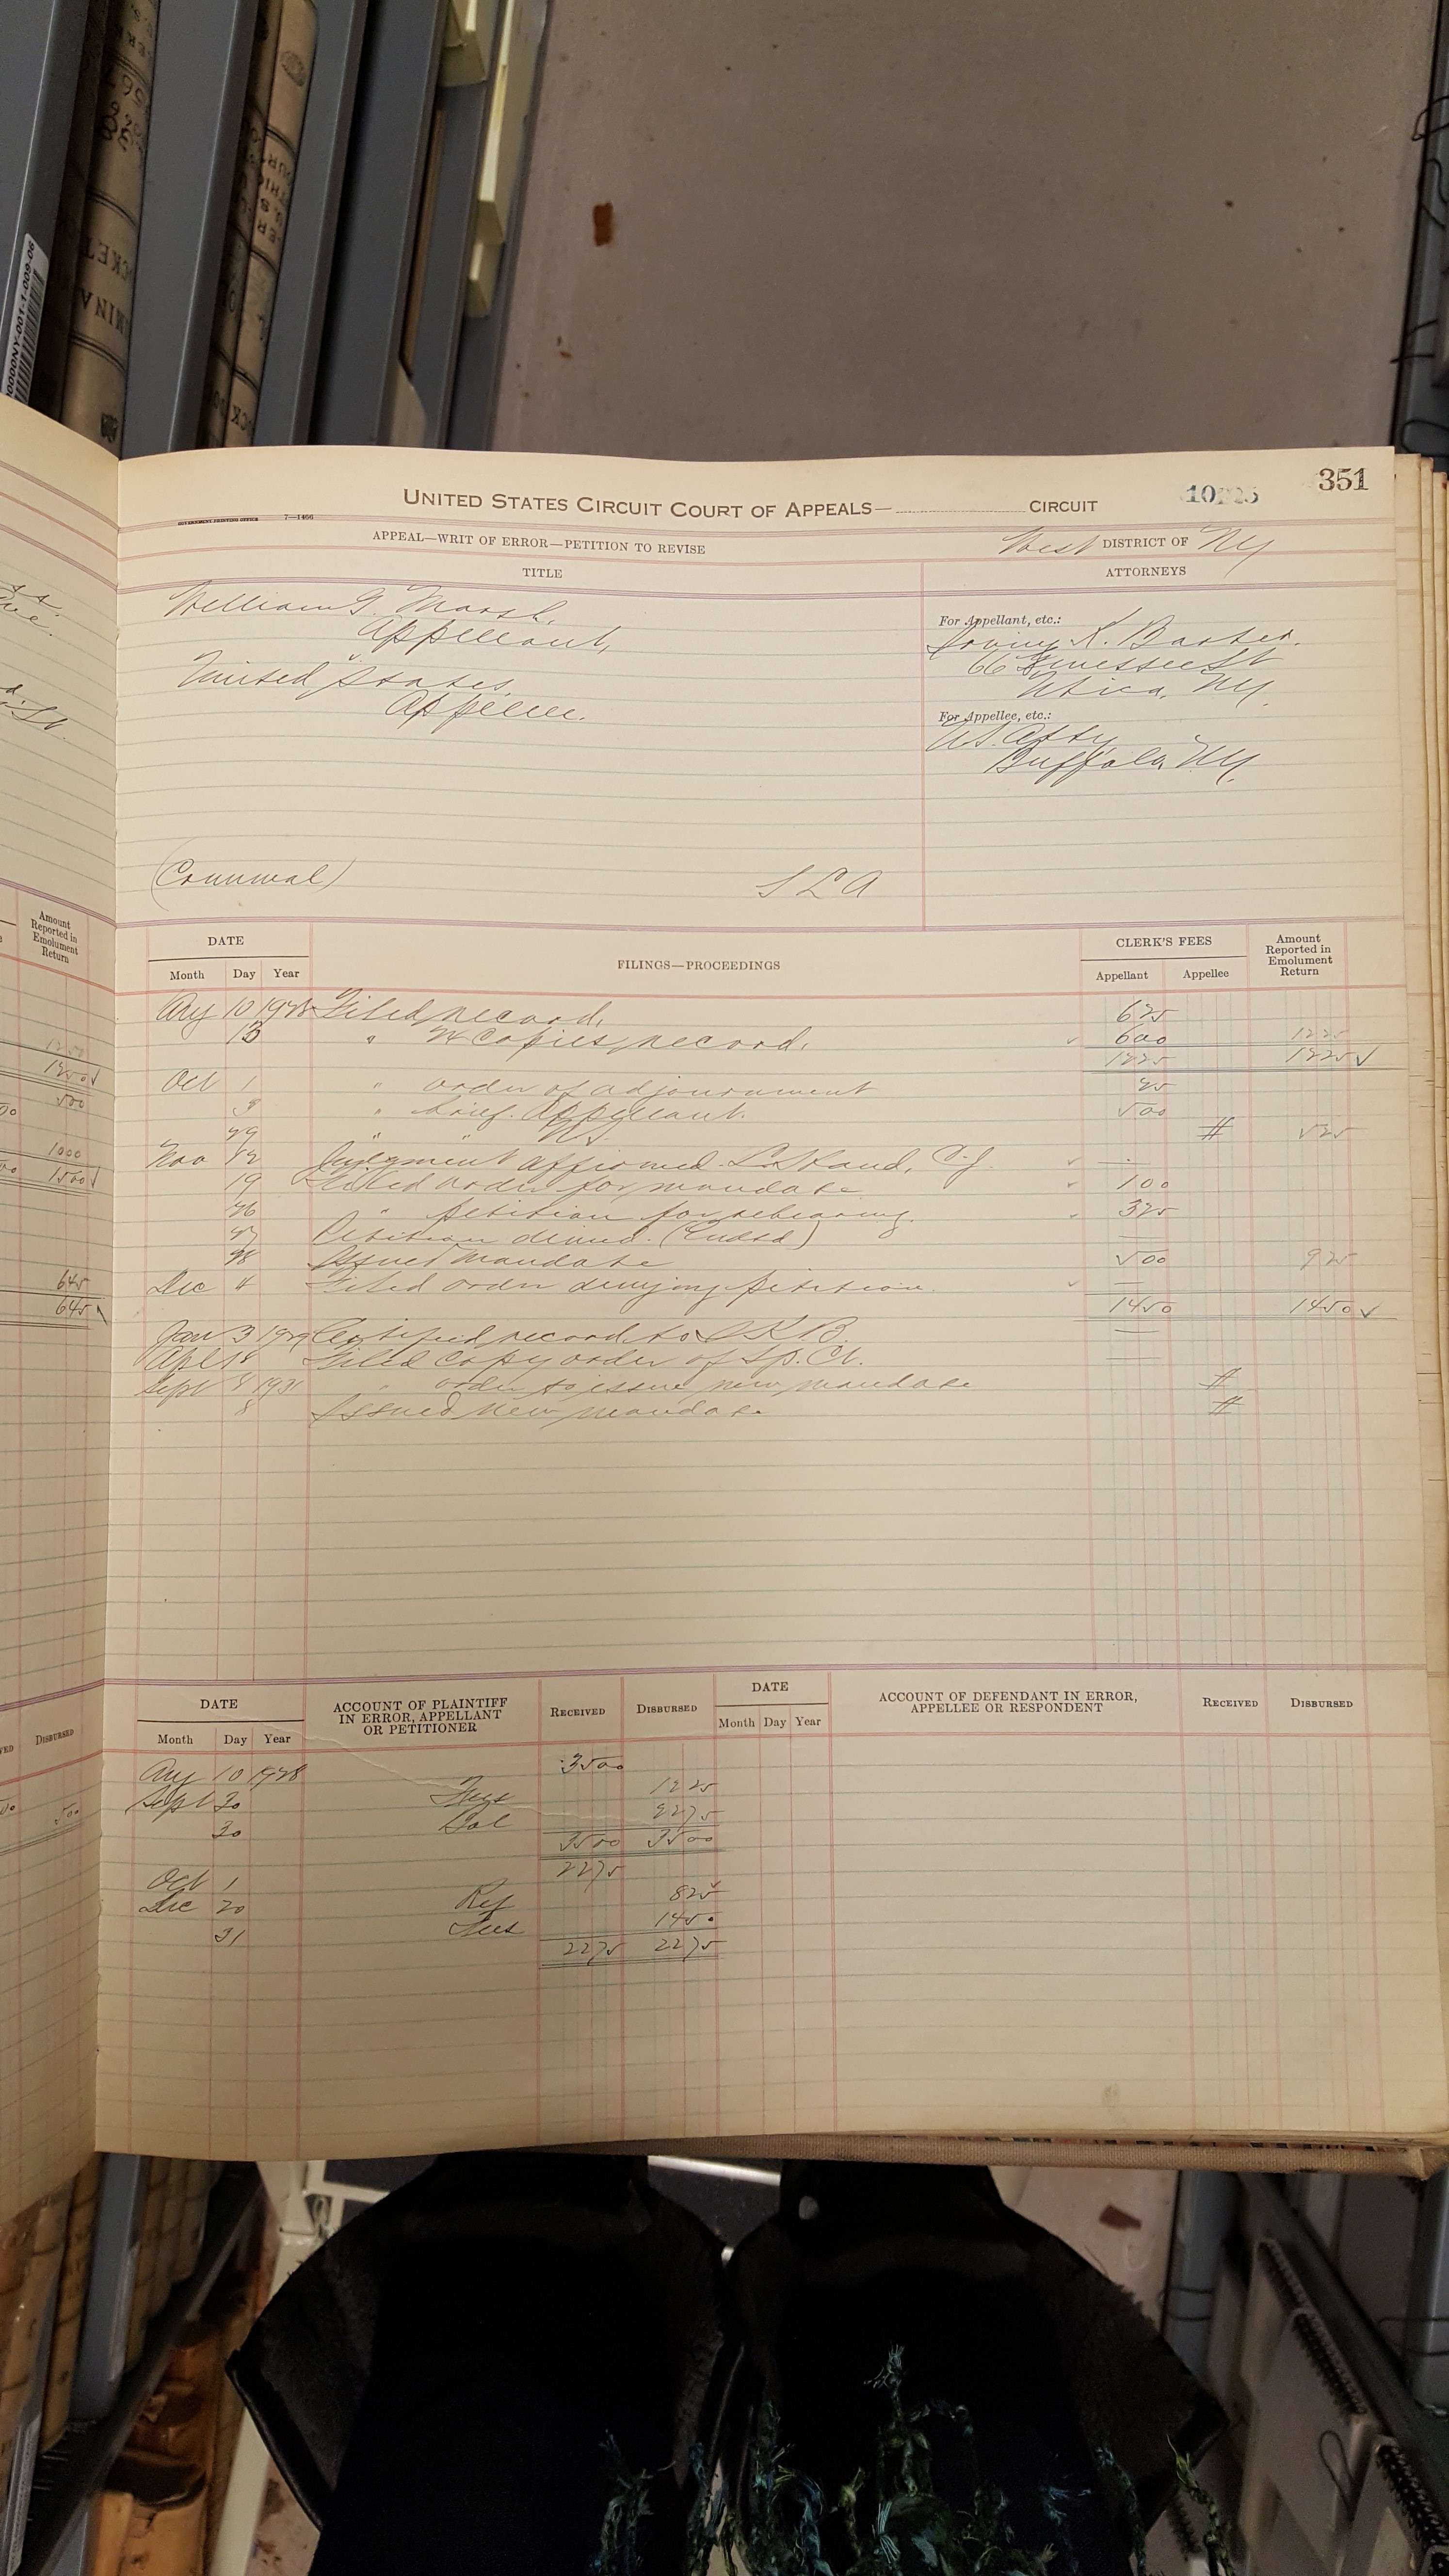 351
UNITED STATES CIRCUIT COURT OF APPEALS— CIRCUIT
GOVERNMENT PRINTING OFFICE 7—1466
APPEAL—WRIT OF ERROR—PETITION TO REVISE
West DISTRICT OF NY
TITLE
ATTORNEYS
William G. Marsh,
Appellant,
v.
United States,
Appellee.
For Appellant, etc.:
Irving K. Baxter.
66 Genessee St
Utica, NY.
For Appellee, etc.:
U.S. Atty,
Buffalo, NY.
(Criminal)
DATE
FILINGS—PROCEEDINGS
CLERK'S FEES
Amount Reported in Emolument Return
Month Day Year
Appellant Appellee
Aug 10 1928 Filed record, 625
13 " 24 Copies, record. 600 1225
1225 1225 ✓
Oct 1 " order of adjournment 25
3 " brief. Appellant. 500
29 " " US # 525
Nov 12 Judgment affirmed. L. Hand, C.J. —
19 Filed order for mandate 100
26 " petition for rehearing. 325
27 Petition denied. —
28 Issued mandate 500 925
Dec 4 Filed order denying petition. —
1450 1450 ✓
Jan 3 1929 Certified record to I.K.B. —
Apl 18 Filed copy order of Sp. Ct. —
Sept 8 1931 " order to issue new mandate #
8 Issued new mandate #
DATE
ACCOUNT OF PLAINTIFF IN ERROR, APPELLANT OR PETITIONER
RECEIVED
DISBURSED
DATE
ACCOUNT OF DEFENDANT IN ERROR, APPELLEE OR RESPONDENT
RECEIVED
DISBURSED
Month Day Year
Month Day Year
Aug 10 1928 3500
Sept 30 Fees 1225
30 Bal 2275
3500 3500
Oct 1 2275
Dec 20 Ref 825
31 Fees 1450
2275 2275
Amount Reported in Emolument Return
1000
1500
645
645
DISBURSED